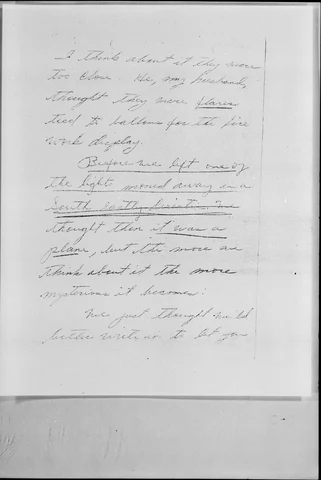 I think about it they were
too close. He, my husband,
thought they were flares
tied to balloons for the fire
work display.
Before we left one of
the lights moved away in a
South Eastly direction. We
thought then it was a
plane, but the more we
think about it the more
mysterious it becomes.
We just thought we'd
better write, to let you